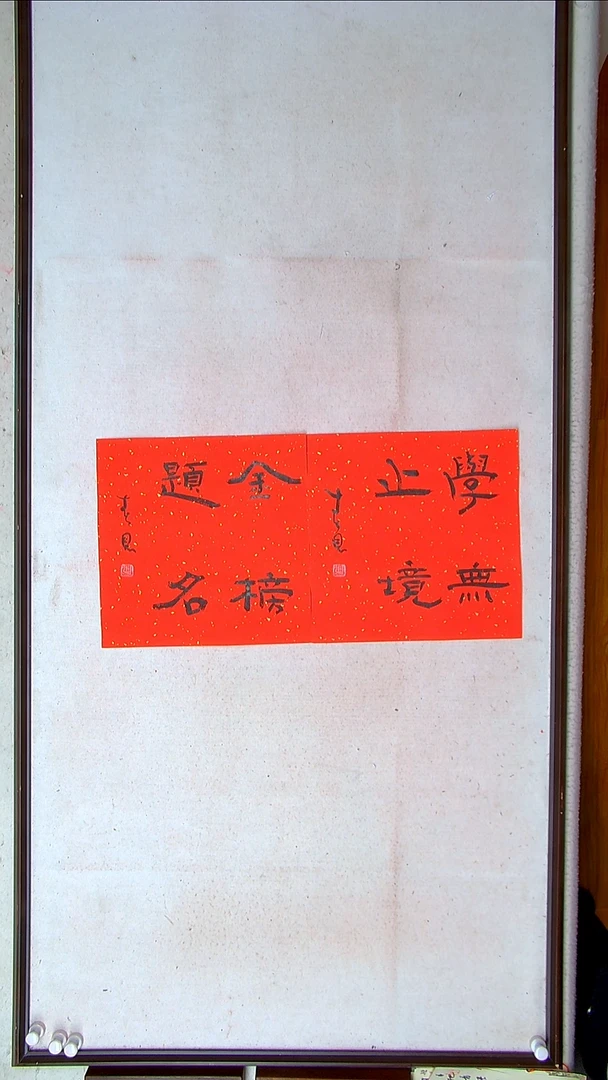 學無
止境
金榜
題名